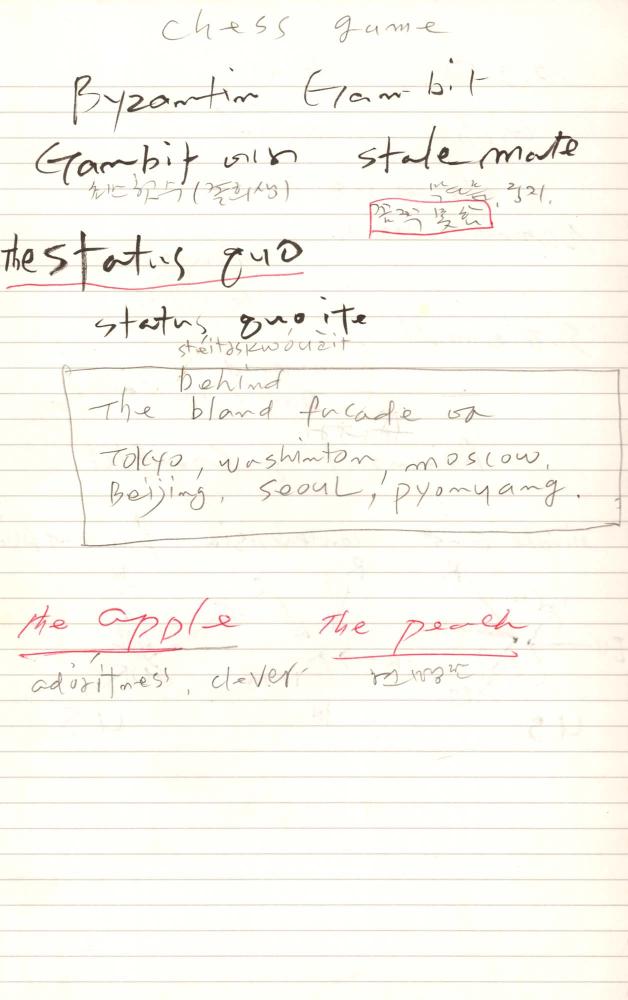 chess game
Byzantin Gambit
Gambit stale mate
(졸희생) 막다름, 궁지.
꼼짝 못함
the status quo
status quo ite
stéitəskwóuàit
behind
The bland facade
Tokyo, washinton, moscow,
Beijing, seoul, pyonyang.
the apple The peach
adroitness, clever